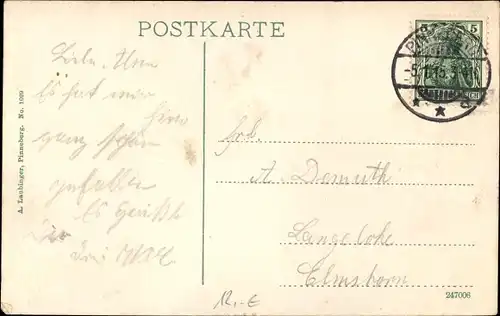 POSTKARTE
5 5
5.7.15.
Liebe
Es hat mir
hier
ganz schön
gefallen
Es grüßt
A. Laubinger, Pinneberg. No. 1029
Frl.
A. Domuth
Langelohe
Elmshorn
12,-€
247006